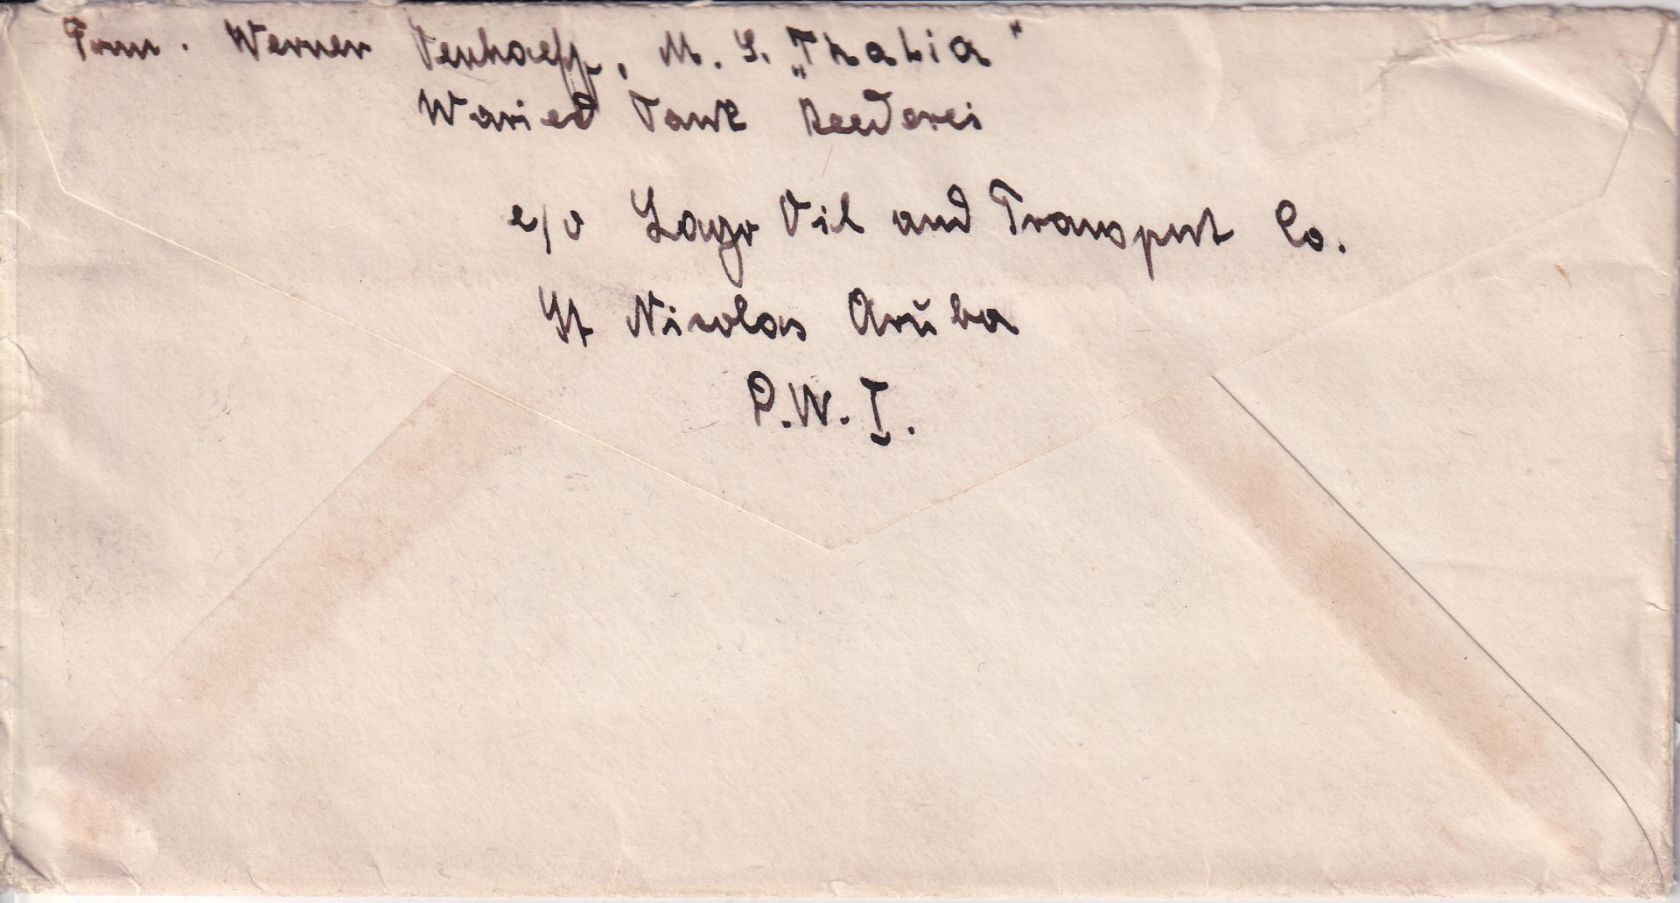 From. Werner Venhaeff, M. S. „Thalia"
Waried Tank Reederei
c/o Lago Oil and Transport Co.
St Nicolas Aruba
D.W.I.